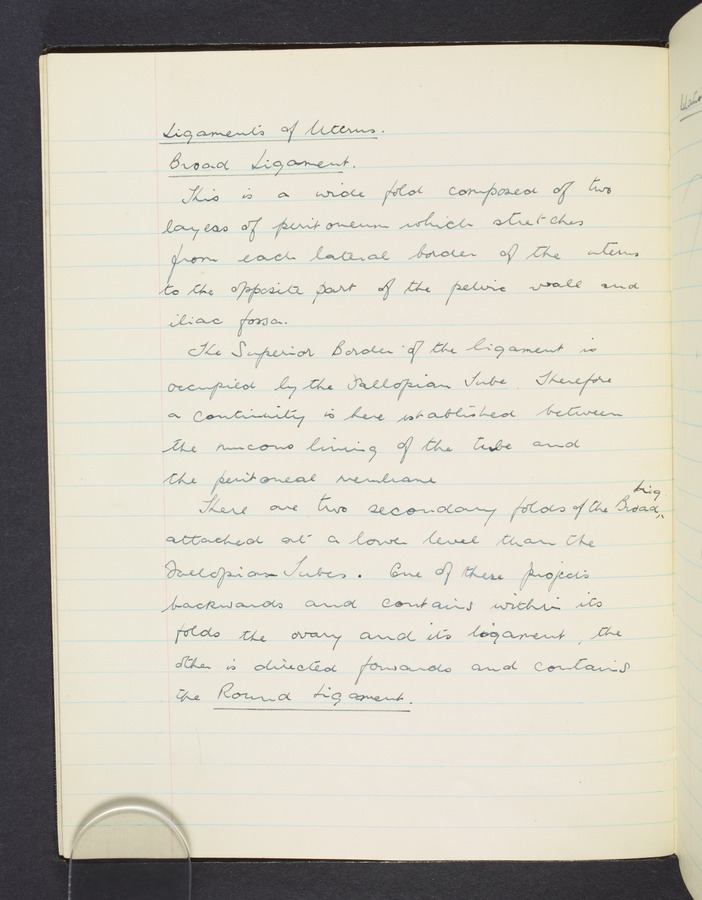 Ligaments of Uterus.
Broad Ligament.
This is a wide fold composed of two
layers of peritoneum which stretches
from each lateral border of the uterus
to the opposite part of the pelvic wall and
iliac fossa.
The Superior Border of the ligament is
occupied by the Fallopian Tube. Therefore
a continuity is here established between
the mucous lining of the tube and
the peritoneal membrane
There are two secondary folds of the Broad Lig
attached at a lower level than the
Fallopian Tubes. One of these projects
backwards and contains within its
folds the ovary and its ligament, the
other is directed forwards and contains
the Round Ligament.